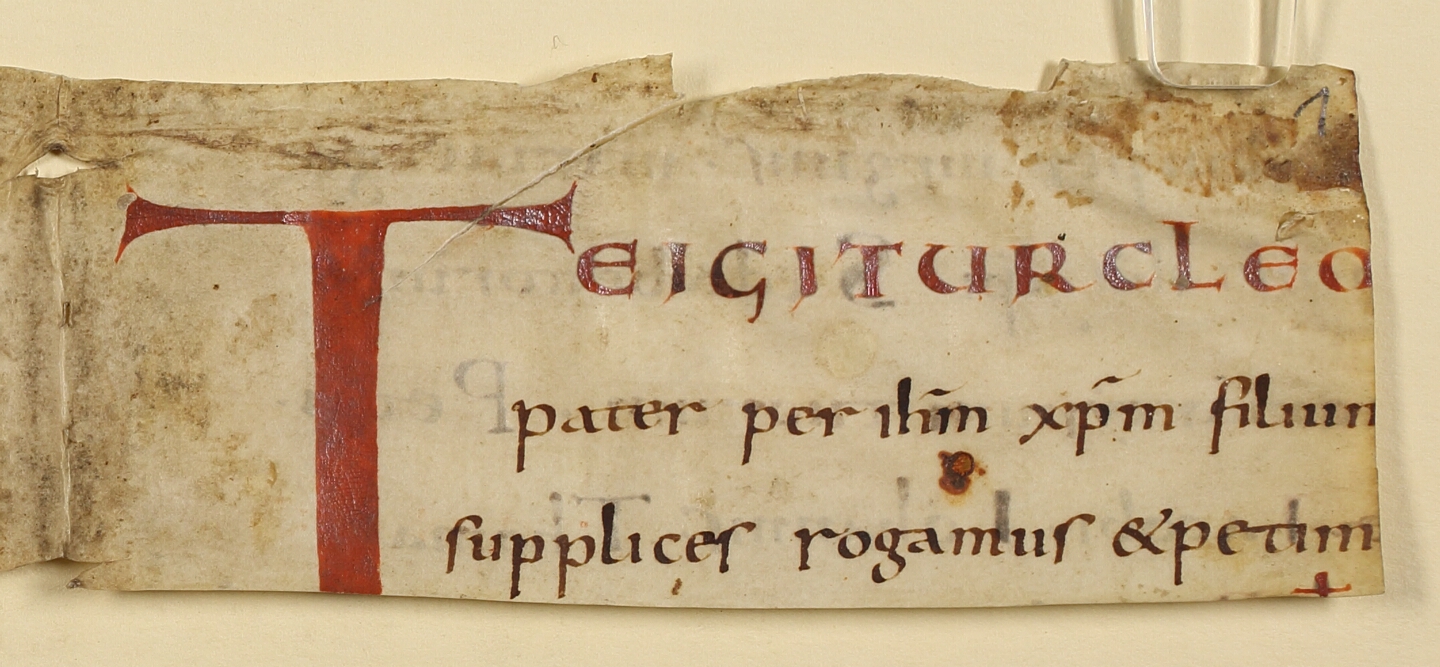 1
TEIGITURCLEO
pater per ih̅m xp̅m filium
supplices rogamus &petim
+